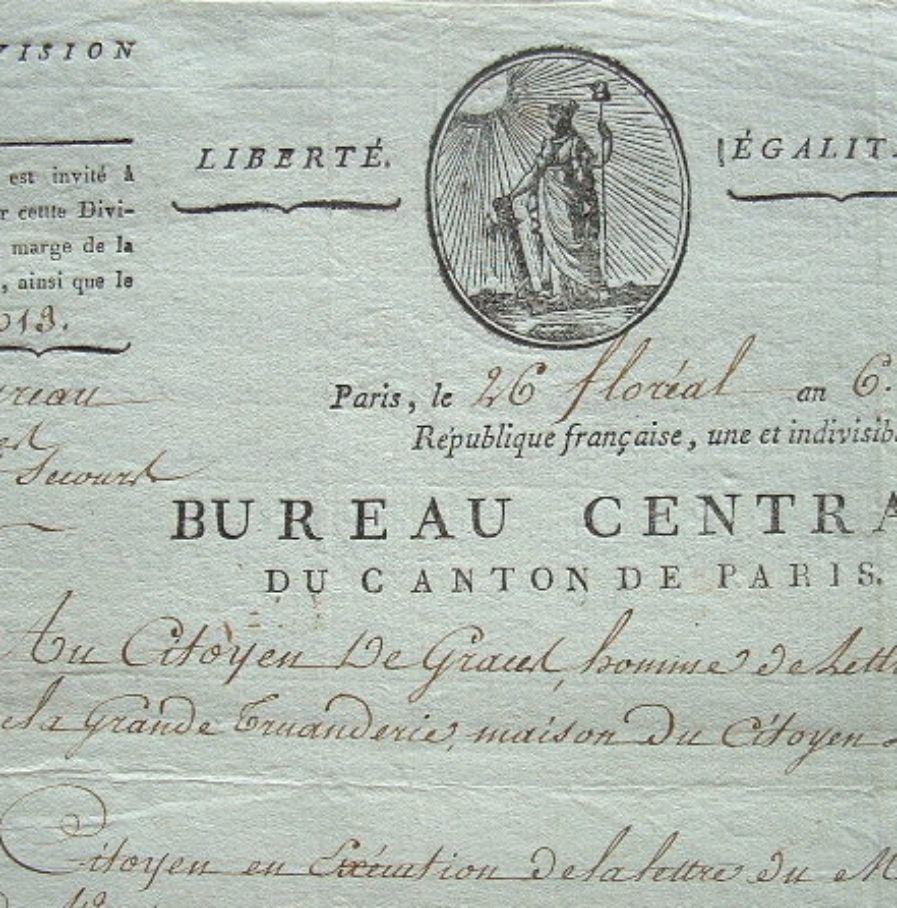 VISION
est invité à
r cette Divi-
marge de la
, ainsi que le
013.
ureau
Secours
LIBERTÉ.
ÉGALIT
Paris, le 26 floréal an 6.
République française, une et indivisib
BUREAU CENTRA
DU CANTON DE PARIS.
Au Citoyen De Grace, homme de Lett
de la Grande Truanderie, maison du Citoyen
Citoyen en Exécution de la lettre du M